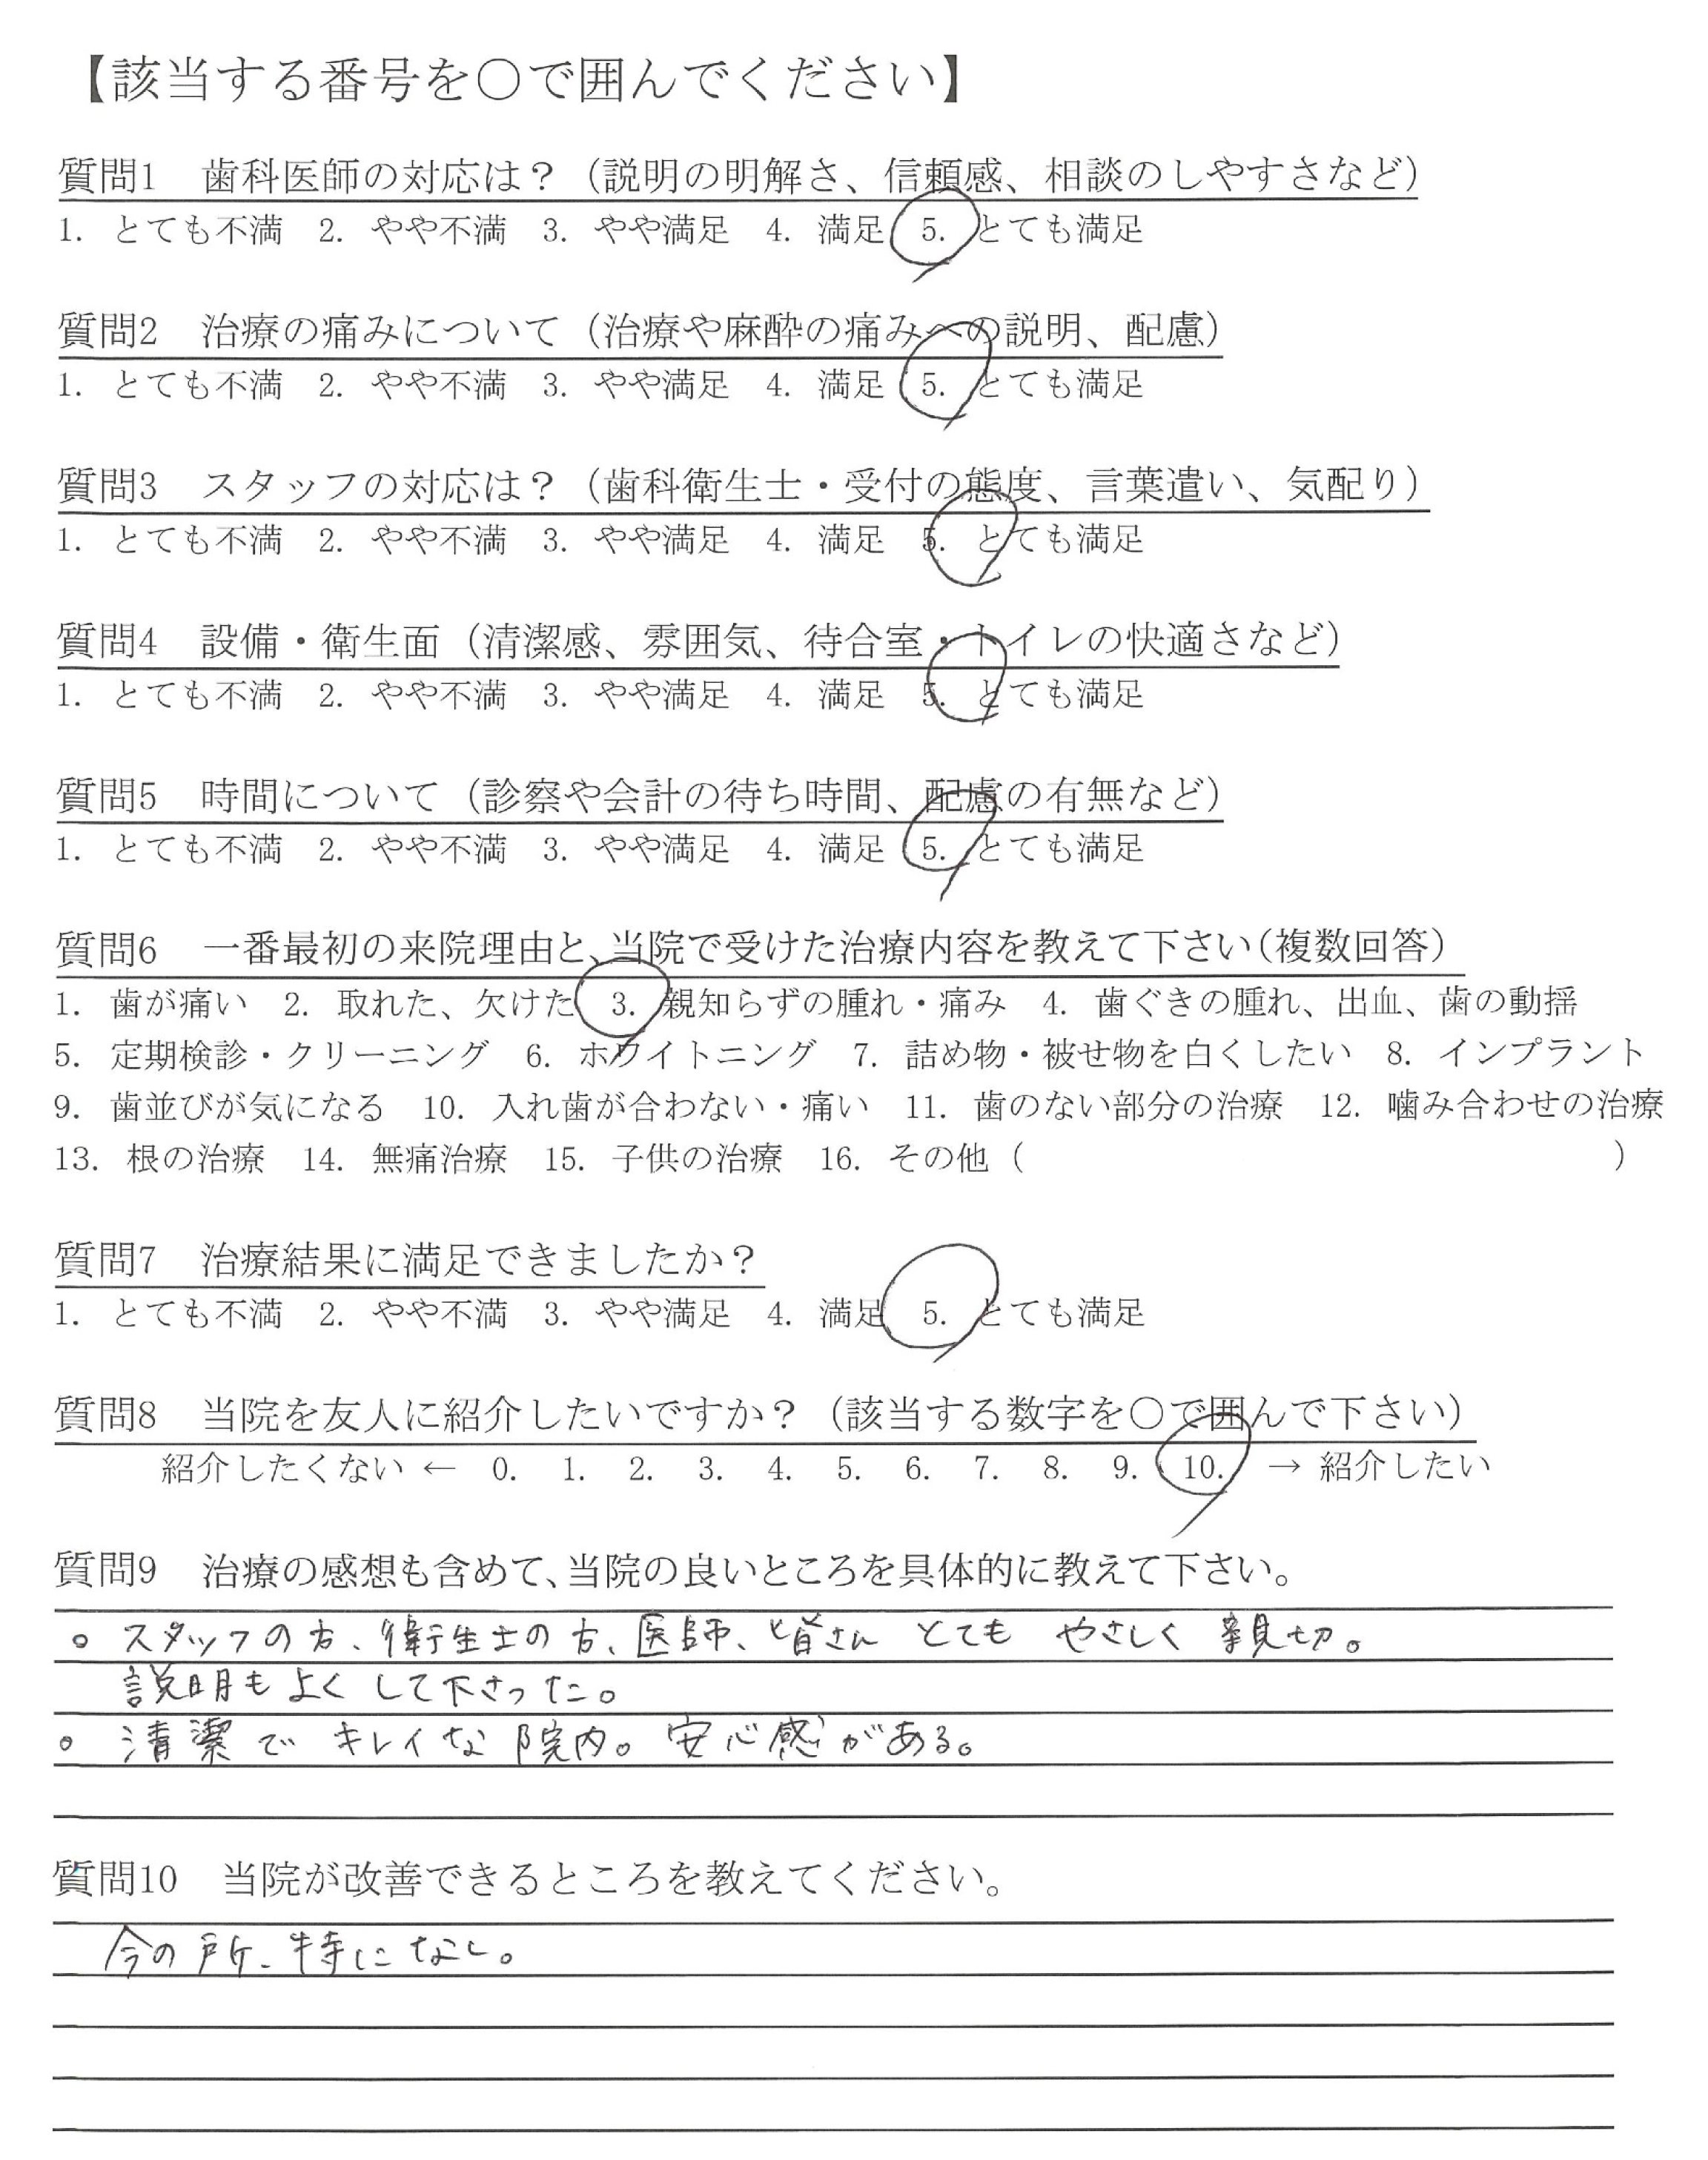 【該当する番号を○で囲んでください】
質問1　歯科医師の対応は？（説明の明解さ、信頼感、相談のしやすさなど）
1. とても不満　2. やや不満　3. やや満足　4. 満足　5. とても満足
質問2　治療の痛みについて（治療や麻酔の痛みへの説明、配慮）
1. とても不満　2. やや不満　3. やや満足　4. 満足　5. とても満足
質問3　スタッフの対応は？（歯科衛生士・受付の態度、言葉遣い、気配り）
1. とても不満　2. やや不満　3. やや満足　4. 満足　5. とても満足
質問4　設備・衛生面（清潔感、雰囲気、待合室・トイレの快適さなど）
1. とても不満　2. やや不満　3. やや満足　4. 満足　5. とても満足
質問5　時間について（診察や会計の待ち時間、配慮の有無など）
1. とても不満　2. やや不満　3. やや満足　4. 満足　5. とても満足
質問6　一番最初の来院理由と、当院で受けた治療内容を教えて下さい（複数回答）
1. 歯が痛い　2. 取れた、欠けた　3. 親知らずの腫れ・痛み　4. 歯ぐきの腫れ、出血、歯の動揺
5. 定期検診・クリーニング　6. ホワイトニング　7. 詰め物・被せ物を白くしたい　8. インプラント
9. 歯並びが気になる　10. 入れ歯が合わない・痛い　11. 歯のない部分の治療　12. 噛み合わせの治療
13. 根の治療　14. 無痛治療　15. 子供の治療　16. その他（　　　　　　　　　　　　　　　　　）
質問7　治療結果に満足できましたか？
1. とても不満　2. やや不満　3. やや満足　4. 満足　5. とても満足
質問8　当院を友人に紹介したいですか？（該当する数字を○で囲んで下さい）
紹介したくない ← 0. 1. 2. 3. 4. 5. 6. 7. 8. 9. 10. → 紹介したい
質問9　治療の感想も含めて、当院の良いところを具体的に教えて下さい。
○ スタッフの方、衛生士の方、医師、と皆さん とても やさしく 親切。
説明もよく して下さった。
○ 清潔で キレイな 院内。安心感がある。
質問10　当院が改善できるところを教えてください。
今の所、特になし。